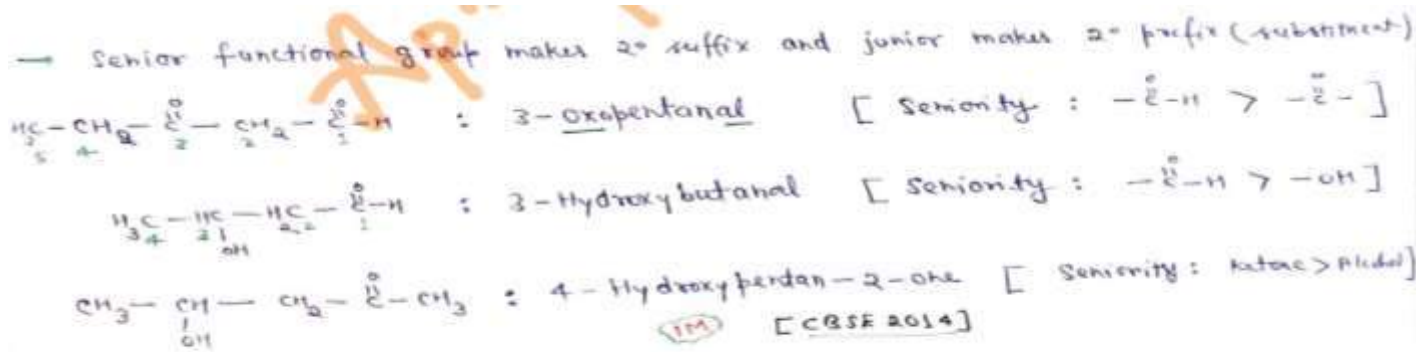 → Senior functional group makes 2° suffix and junior makes 2° prefix (substituent)
H3C - CH2 - C(=O) - CH2 - C(=O) - H : 3-oxopentanal [ Seniority : -C(=O)-H > -C(=O)- ]
5 4 3 2 1
H3C - HC - H2C - C(=O)-H : 3-Hydroxybutanal [ Seniority : -C(=O)-H > -OH ]
4 3 2 1
OH
CH3 - CH - CH2 - C(=O) - CH3 : 4-Hydroxypentan-2-one [ Seniority: Ketone > Alcohol]
OH
1M [CBSE 2014]